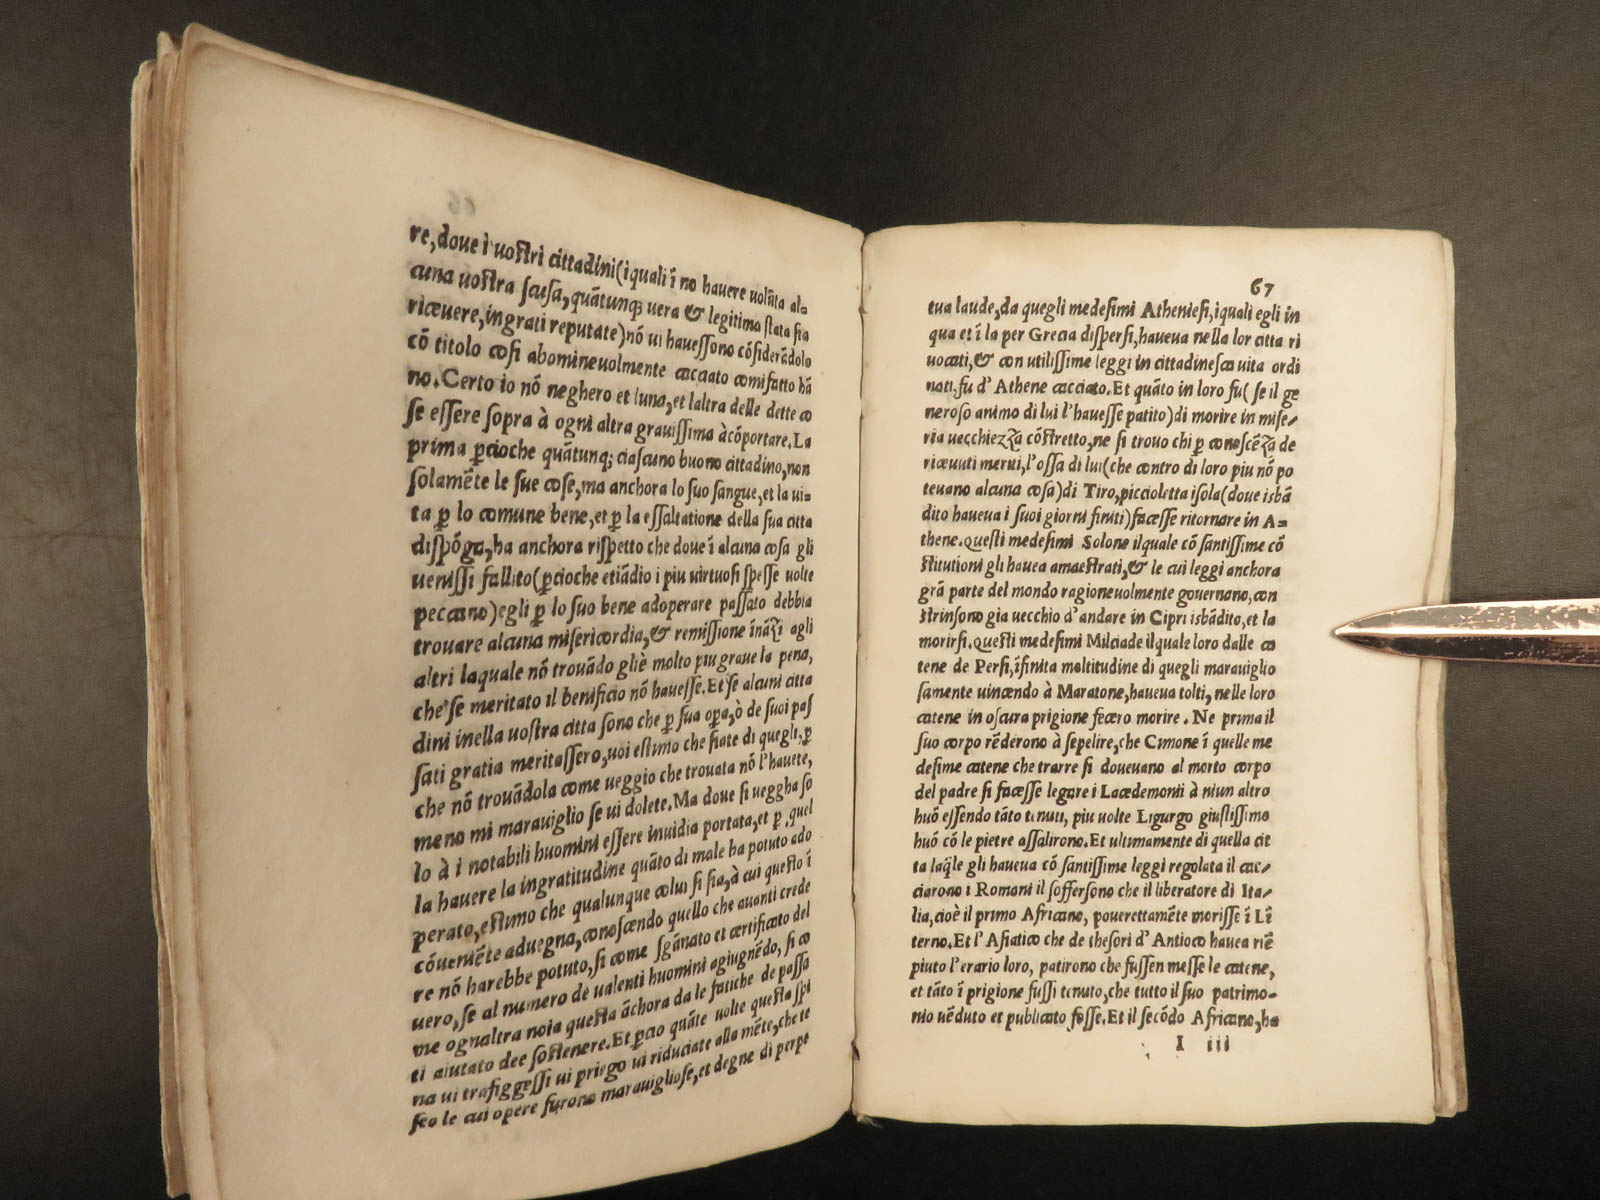 re, doue i uostri cittadini (i quali ĩ no hauere uolũta al=
cuna uostra scusa, quãtunq; uera & legitima stata sia
riceuere, ingrati reputate) nõ ui hauessono cõsiderãdolo
cõ titolo cosi abomineuolmente cacciato comi fatto hã
no. Certo io nõ neghero et luna, et laltra delle dette co
se essere sopra à ogni altra grauissima à cõportare. La
prima ꝑcioche quãtunq; ciascuno buono cittadino, non
solamẽte le sue cose, ma anchora lo suo sangue, et la ui=
ta ꝑ lo comune bene, et ꝑ la essaltatione della sua citta
dispõga, ha anchora rispetto che doue ĩ alcuna cosa gli
uenissi fallito (ꝑcioche etiãdio i piu uirtuosi spesse uolte
peccano) egli ꝑ lo suo bene adoperare passato debbia
trouare alcuna misericordia, & remissione ĩnãzi agli
altri laquale nõ trouãdo gliè molto piu graue la pena,
che se meritato il benificio nõ hauesse. Et se alcuni citta
dini inella uostra citta sono che ꝑ sua opa, ò de suoi pas
sati gratia meritassero, uoi estimo che siate di quegli, ꝑ
che nõ trouãdola come ueggio che trouata nõ l'hauete,
meno mi marauiglio se ui dolete. Ma doue si uegg ha so
lo à i notabili huomini essere inuidia portata, et ꝑ quel
la hauere la ingratitudine quãto di male ha potuto ado
perato, estimo che qualunque colui si sia, à cui questo ĩ
cõueniẽte aduegna, conoscendo quello che auanti crede
re nõ harebbe potuto, si come sgãnato et certificato del
uero, se al numero de ualenti huomini agiugnẽdo, si co
me ognaltra noia questa ãchora da le fatiche de passa
ti aiutato dee sostenere. Et ꝑcio quãte uolte questa spi
na ui trafiggessi ui priego ui riduciate alla mẽte, che te
seo le cui opere furono marauigliose, et degne di perpe
67
tua laude, da quegli medesimi Atheniesi, i quali egli in
qua et ĩ la per Grecia dispersi, haueua nella lor citta ri
uocati, & con utilissime leggi in cittadinesca uita ordi
nati, fu d'Athene cacciato. Et quãto in loro fu (se il ge
neroso animo di lui l'hauesse patito) di morire in mise-
ria uecchiezza cõstretto, ne si trouo chi ꝑ conoscẽza de
riceuuti meriti, l'ossa di lui (che contro di loro piu nõ po
teuano alcuna cosa) di Tiro, piccioletta isola (doue isbã
dito haueua i suoi giorni finiti) facesse ritornare in A=
thene. Questi medesimi Solone il quale cõ santissime cõ
stitutioni gli hauea amaestrati, & le cui leggi anchora
grã parte del mondo ragioneuolmente gouernano, con
strinsono gia uecchio d'andare in Cipri isbãdito, et la
morirsi, Questi medesimi Milciade il quale loro dalle ca
tene de Persi, ĩfinita moltitudine di quegli marauiglio
samente uincendo à Maratone, haueua tolti, nelle loro
catene in oscura prigione fecero morire. Ne prima il
suo corpo rẽderono à sepelire, che Cimone ĩ quelle me
desime catene che trarre si doueuano al morto corpo
del padre si facesse legare i Lacedemonii à niun altro
huõ essendo tãto tenuti, piu uolte Ligurgo giustissimo
huõ cõ le pietre assalirono. Et ultimamente di quella cit
ta laq̃le gli haueua cõ santissime leggi regolata il cac-
ciarono i Romani il soffersono che il liberatore di Ita-
lia, cioè il primo Africano, pouerettamẽte morisse ĩ Lĩ
terno. Et l'Asiatico che de thesori d'Antioco hauea riẽ
piuto l'erario loro, patirono che fussen messe le catene,
et tãto ĩ prigione fussi tenuto, che tutto il suo patrimo=
nio uẽduto et publicato fosse. Et il secõdo Africano, ha
I iii